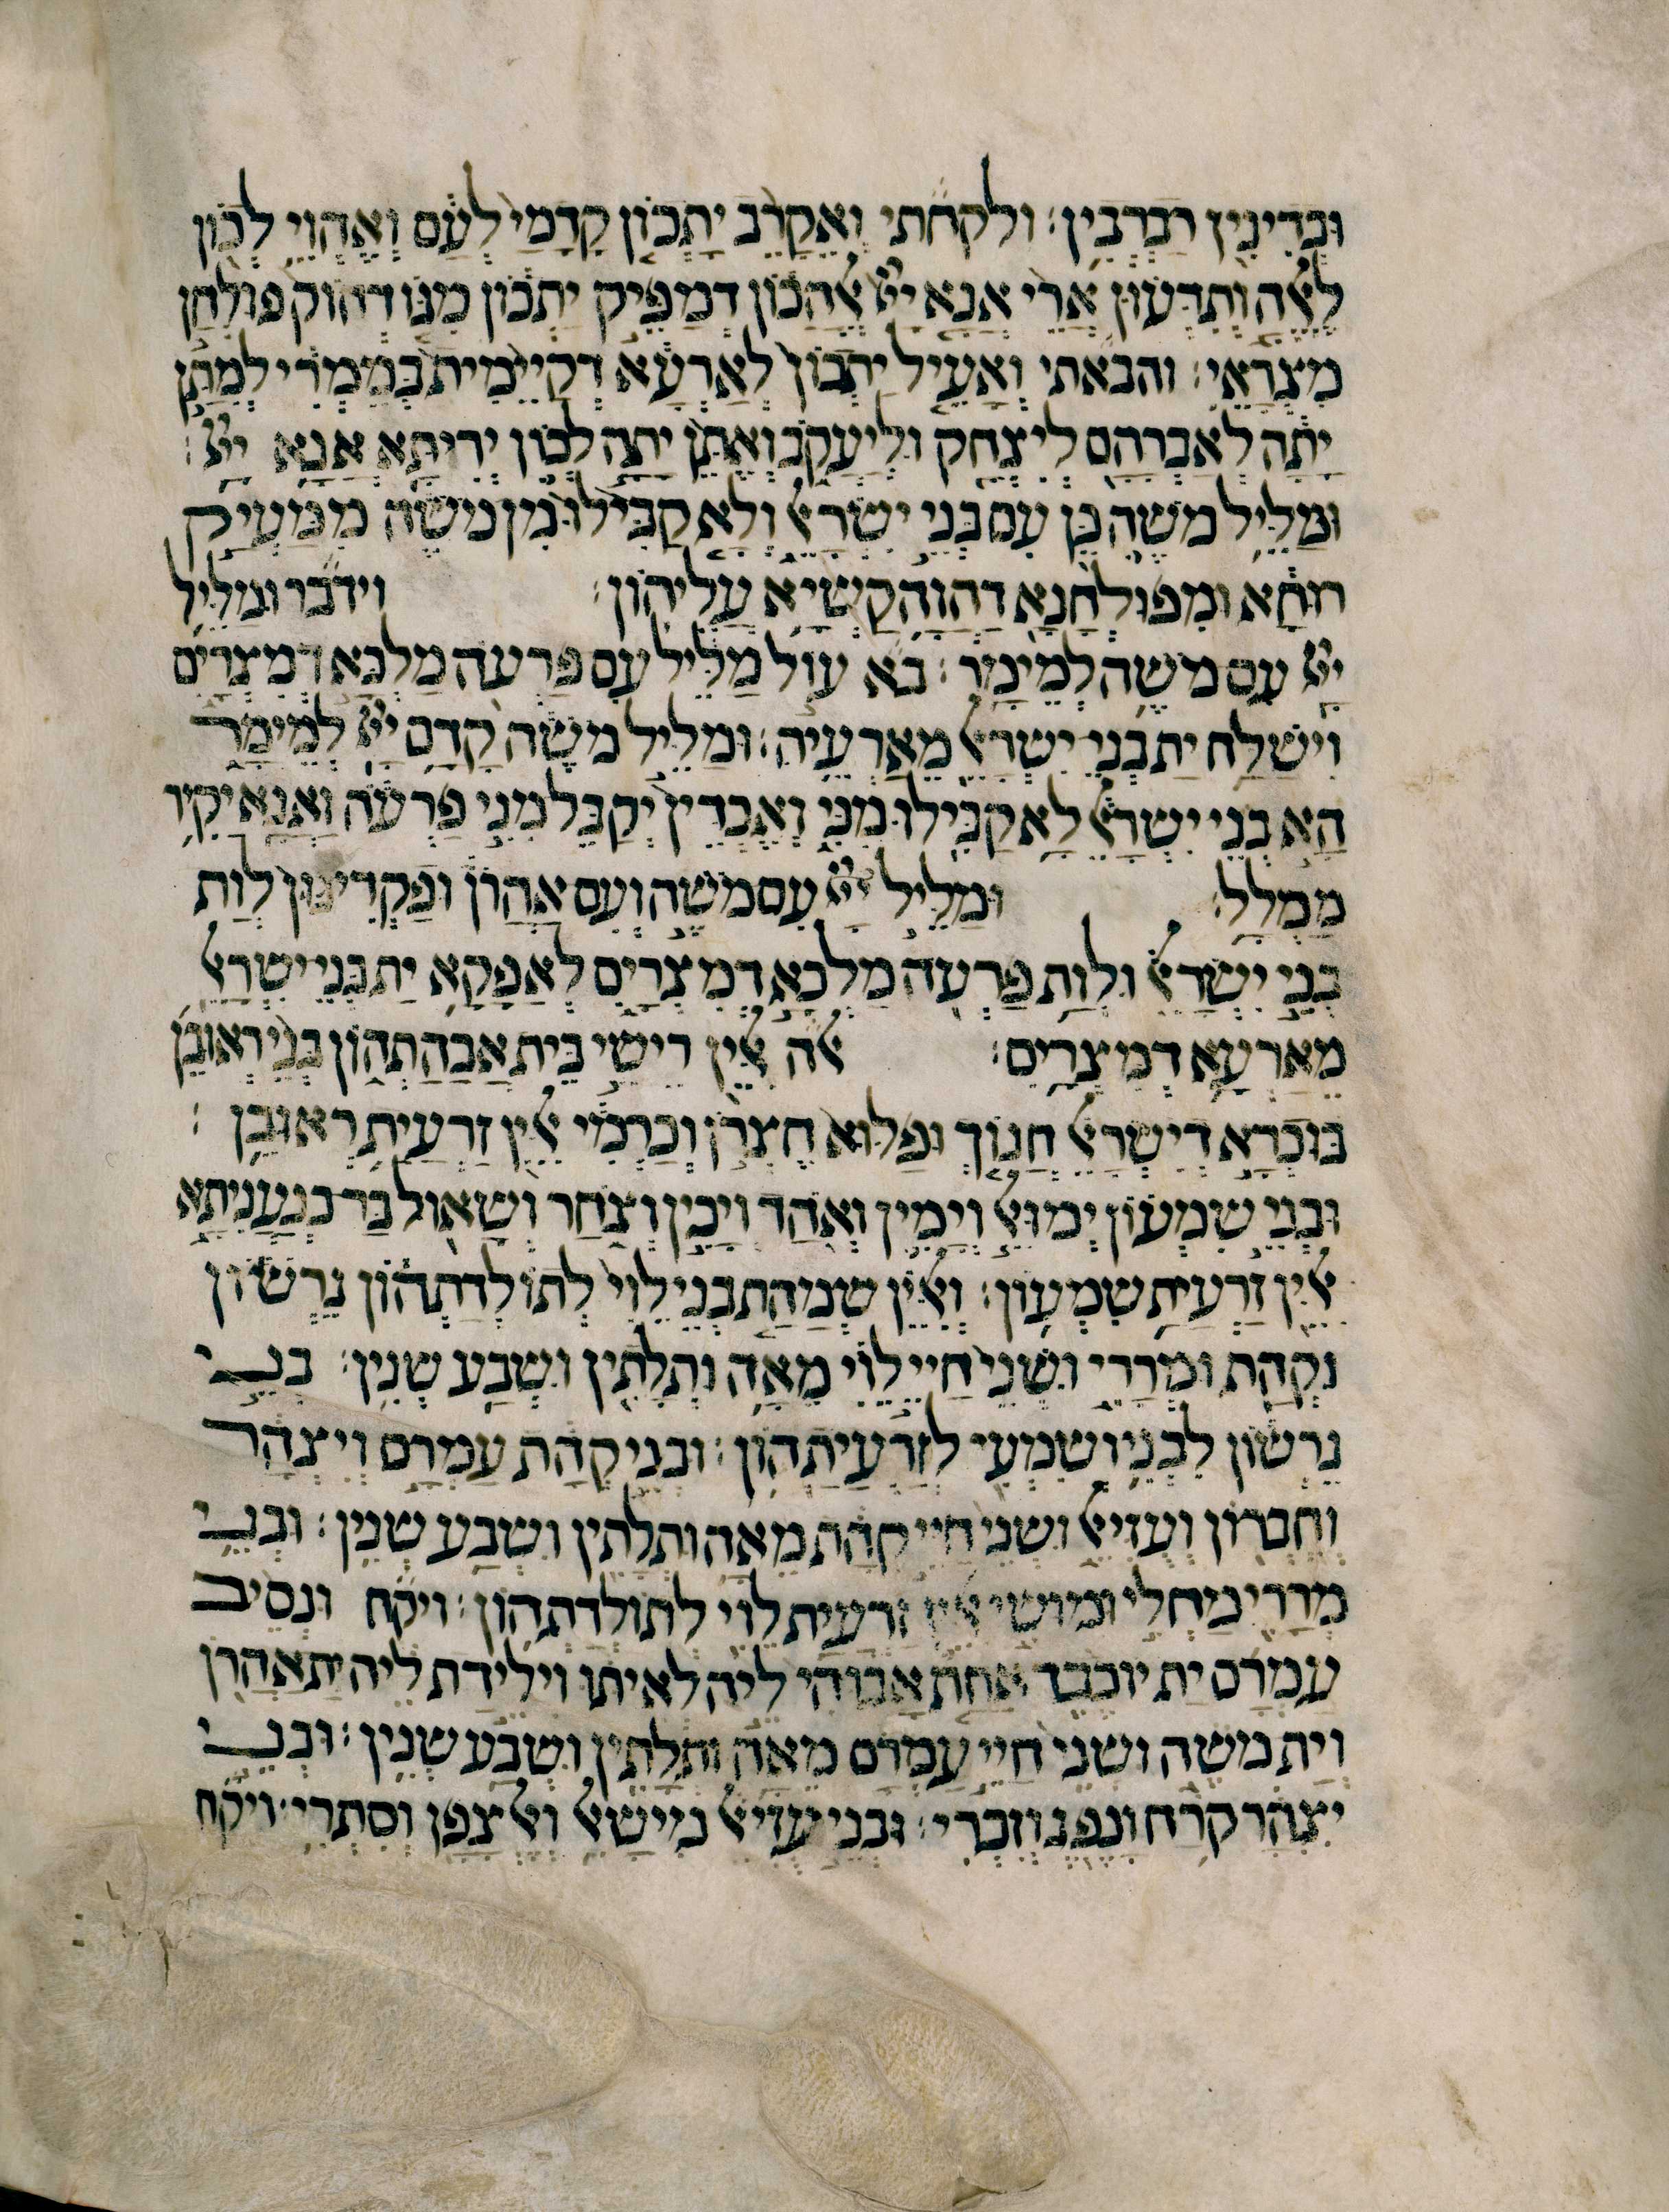 וּבְדִינִין רַבְרְבִין׃ ולקחתי וְאֵקָרֵב יָתְכוֹן קֳדָמַי לְעַם וְאֶהֱוֵי לְכוֹן
לֶאֱלָהּ וְתִדְּעוּן אֲרֵי אֲנָא יי אֱלָהֲכוֹן דְּמַפֵּיק יָתְכוֹן מִגּוֹ דְּחוֹק פּוּלְחַן
מִצְרָאֵי׃ והבאתי וְאָעֵיל יָתְכוֹן לְאַרְעָא דְּקַיֵּימִית בְּמֵימְרִי לְמִתַּן
יָתַהּ לְאַבְרָהָם לְיִצְחָק וּלְיַעֲקֹב וְאֶתֵּן יָתַהּ לְכוֹן יְרוּתָּא אֲנָא יי׃
וּמַלֵּיל מֹשֶׁה כֵּן עִם בְּנֵי יִשְׂרָאֵל וְלָא קַבִּילוּ מִן מֹשֶׁה מִמַּעְיַק
רוּחָא וּמִפּוּלְחָנָא דַּהֲוָה קַשְׁיָא עֲלֵיהוֹן׃ וידבר וּמַלֵּיל
יי עִם מֹשֶׁה לְמֵימָר׃ בא עוֹל מַלֵּיל עִם פַּרְעֹה מַלְכָּא דְּמִצְרָיִם
וִישַׁלַּח יָת בְּנֵי יִשְׂרָאֵל מֵאַרְעֵיהּ׃ וּמַלֵּיל מֹשֶׁה קֳדָם יי לְמֵימָר
הָא בְּנֵי יִשְׂרָאֵל לָא קַבִּילוּ מִנִּי וְאֶכְדֵין יְקַבֵּל מִנִּי פַּרְעֹה וַאֲנָא יַקִּיר
מַמְלַל׃ וּמַלֵּיל יי עִם מֹשֶׁה וְעִם אַהֲרֹן וּפַקֵּדִינּוּן לְוָת
בְּנֵי יִשְׂרָאֵל וּלְוָת פַּרְעֹה מַלְכָּא דְּמִצְרָיִם לְאַפָּקָא יָת בְּנֵי יִשְׂרָאֵל
מֵאַרְעָא דְּמִצְרָיִם׃ אלה אִלֵּין רֵישֵׁי בֵּית אֲבָהָתְהוֹן בְּנֵי רְאוּבֵן
בּוּכְרָא דְּיִשְׂרָאֵל חֲנוֹךְ וּפַלּוּא חֶצְרֹן וְכַרְמִי אִלֵּין זַרְעֲיָת רְאוּבֵן׃
וּבְנֵי שִׁמְעוֹן יְמוּאֵל וְיָמִין וְאֹהַד וְיָכִין וְצֹחַר וְשָׁאוּל בַּר כְּנַעֲנֵיתָא
אִלֵּין זַרְעֲיָת שִׁמְעוֹן׃ וְאִלֵּין שְׁמָהָת בְּנֵי לֵוִי לְתוֹלְדָתְהוֹן גֵּרְשׁוֹן
וּקְהָת וּמְרָרִי וּשְׁנֵי חַיֵּי לֵוִי מְאָה וּתְלָתִין וּשְׁבַע שְׁנִין׃ בְּנֵי
גֵּרְשׁוֹן לִבְנִי וְשִׁמְעִי לְזַרְעֲיָתְהוֹן׃ וּבְנֵי קְהָת עַמְרָם וְיִצְהָר
וְחֶבְרוֹן וְעֻזִּיאֵל וּשְׁנֵי חַיֵּי קְהָת מְאָה וּתְלָתִין וּשְׁבַע שְׁנִין׃ וּבְנֵי
מְרָרִי מַחְלִי וּמוּשִׁי אִלֵּין זַרְעֲיָת לֵוִי לְתוֹלְדָתְהוֹן׃ ויקח וּנְסֵיב
עַמְרָם יָת יוֹכֶבֶד אֲחָת אֲבוּהִי לֵיהּ לְאִיתּוּ וִילֵידַת לֵיהּ יָת אַהֲרֹן
וְיָת מֹשֶׁה וּשְׁנֵי חַיֵּי עַמְרָם מְאָה וּתְלָתִין וּשְׁבַע שְׁנִין׃ וּבְנֵי
יִצְהָר קֹרַח וָנֶפֶג וְזִכְרִי׃ וּבְנֵי עֻזִּיאֵל מִישָׁאֵל וְאֶלְצָפָן וְסִתְרִי׃ ויקח